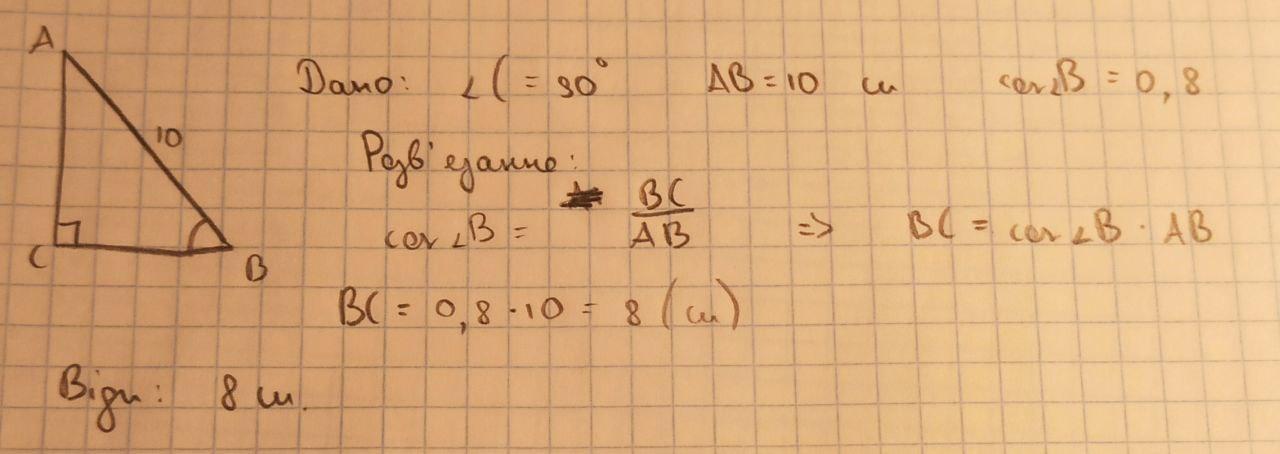 A
10
C
B
Дано: ∠C = 90° AB = 10 см cos∠B = 0,8
Розв'язання:
cos∠B = BC/AB => BC = cos∠B · AB
BC = 0,8 · 10 = 8 (см)
Відп: 8 см.